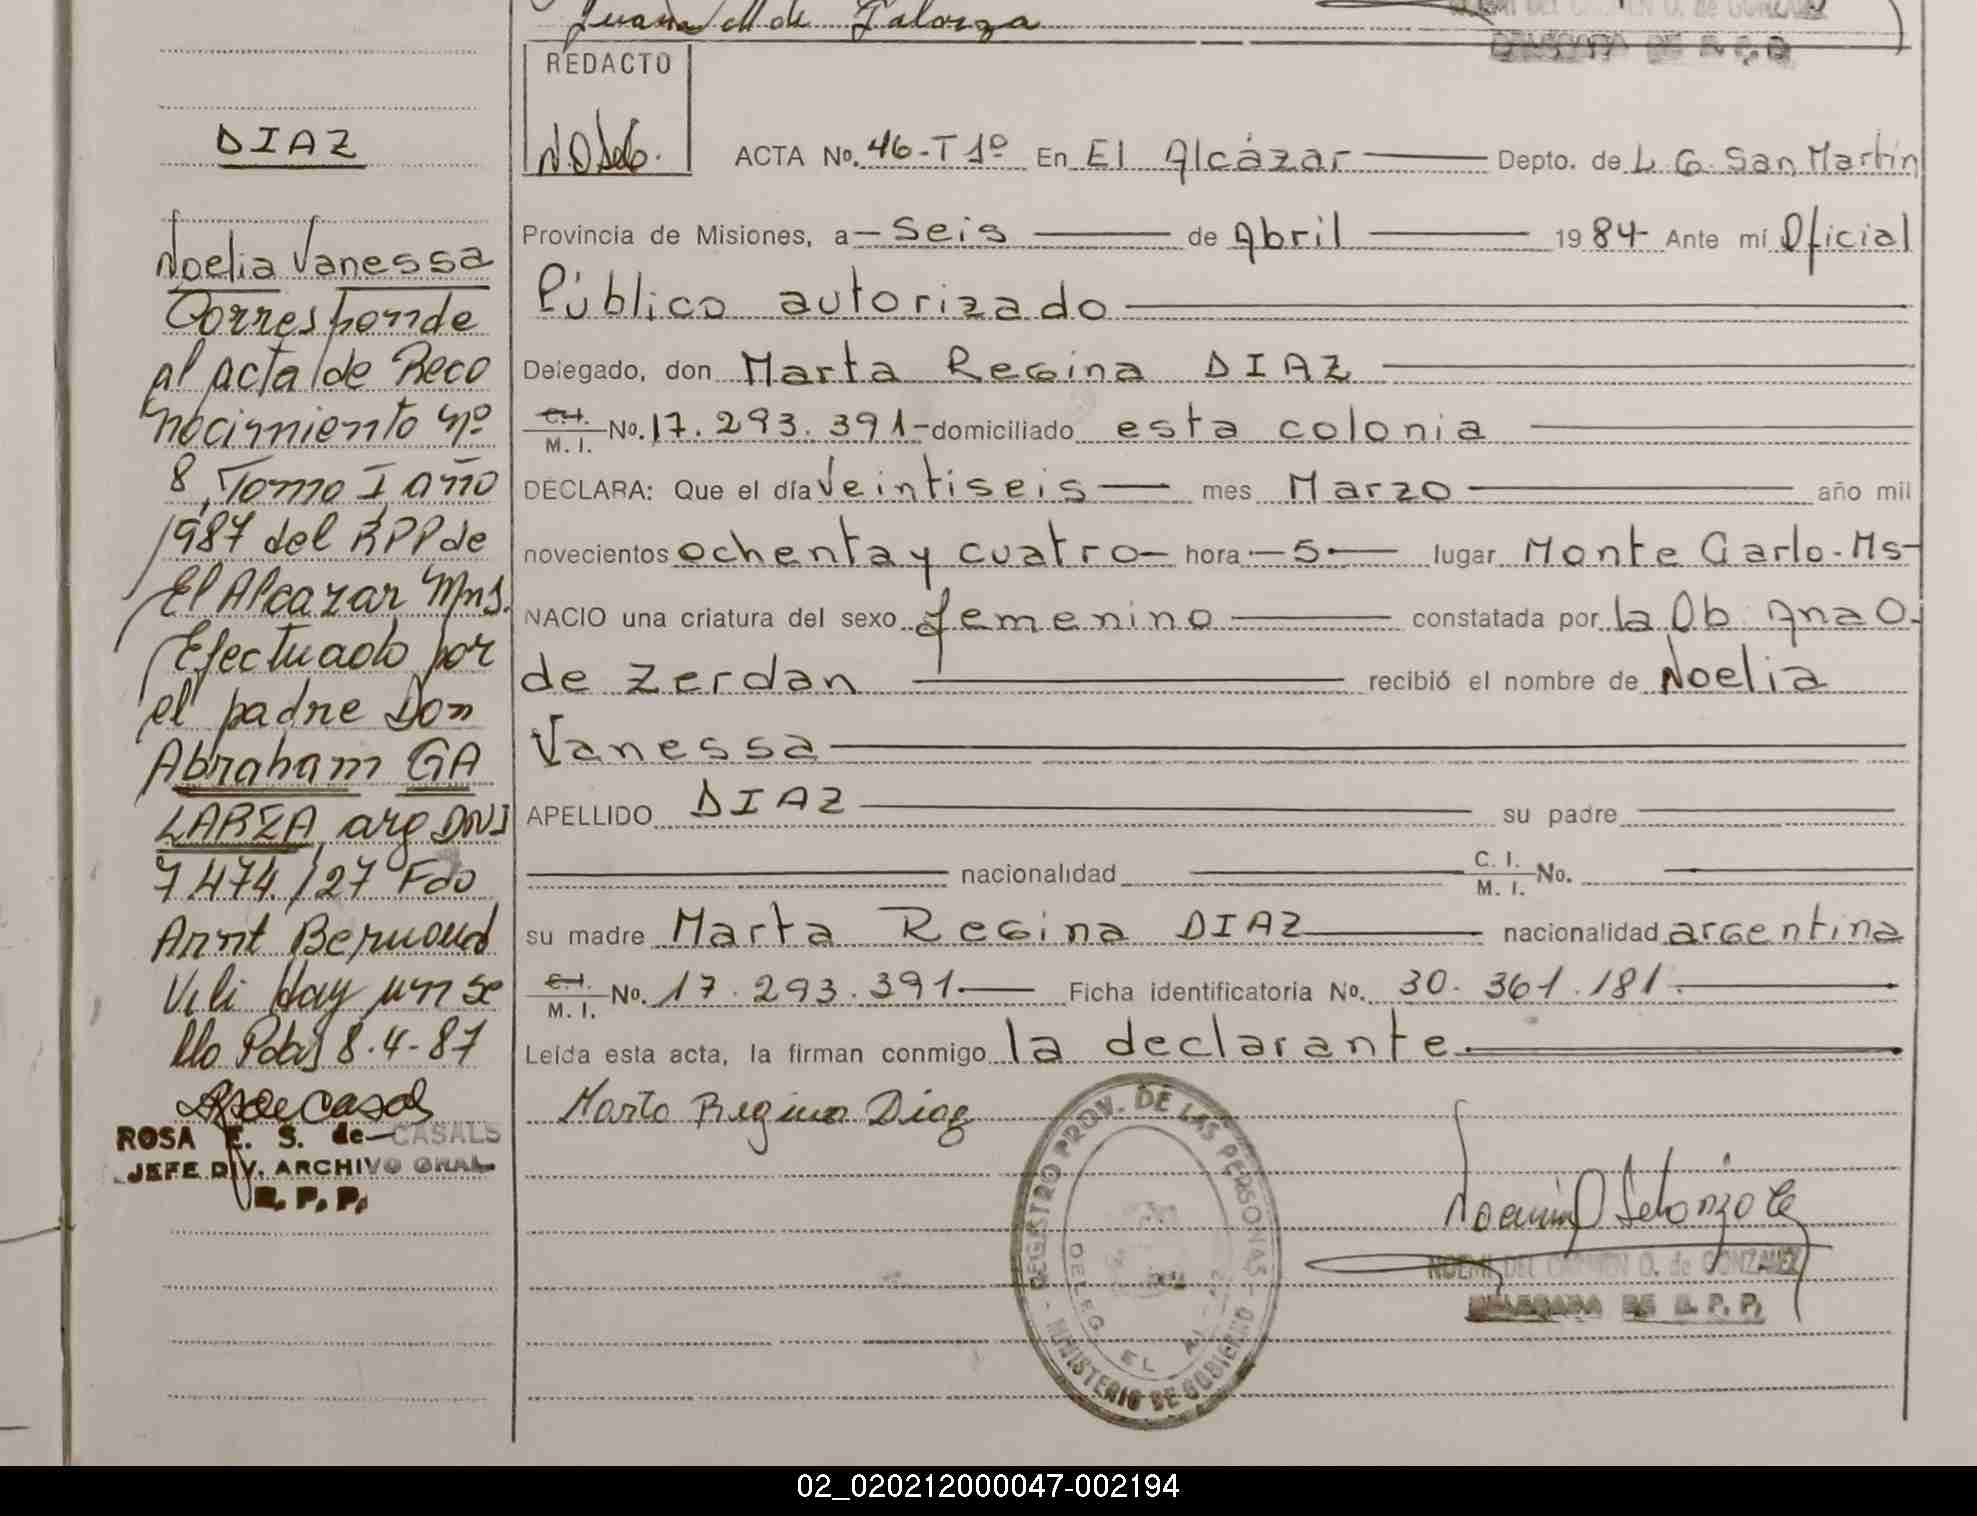 Juana M de Galarza
DELEGADA DE R.P.P.
REDACTO
DIAZ
ACTA No. 46-T 1º En El Alcázar Depto. de L G. San Martín
Provincia de Misiones, a seis de Abril 1984 Ante mí Oficial
Público autorizado
Delegado, don Marta Regina DIAZ
C.I. M. I. No. 17.293.391- domiciliado esta colonia
DECLARA: Que el día Veintiseis mes Marzo año mil
novecientos ochenta y cuatro- hora -5- lugar Monte Carlo-Ms-
NACIO una criatura del sexo femenino constatada por la Ob. Ana O.
de Zerdan recibió el nombre de Noelia
Vanessa
APELLIDO DIAZ su padre
nacionalidad C. I. M. I. No.
su madre Marta Regina DIAZ nacionalidad argentina
C.I. M. I. No. 17.293.391 Ficha identificatoria No. 30.361.181.
Leída esta acta, la firman conmigo la declarante
Marta Regina Diaz
Noelia Vanessa
Corresponde
al acta de Reco
nocimiento nº
8, Tomo I año
1987 del RPP de
El Alcazar Mns.
Efectuado por
el padre Don
Abraham GA
LARZA arg DNI
7474.127 Fdo
Hay un se
llo Pdas 8-4-87
ROSA E. S. de CASALS
JEFE DIV. ARCHIVO GRAL.
R. P. P.
REGISTRO PROV. DE LAS PERSONAS - MINISTERIO DE GOBIERNO
DELEG. EL
NOEMI DEL CARMEN O. de GONZALEZ
DELEGADA DE R. P. P.
02_020212000047-002194